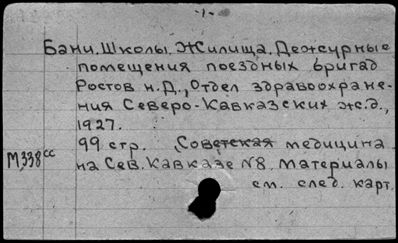 -1-
Бани. Школы. Жилища. Дежурные
помещения поездных бригад
Ростов н.Д., Отдел здравоохране-
ния Северо-Кавказских ж.д.,
1927.
99 стр. Советская медицина
М338сс на Сев. Кавказе N8. Материалы
см. след. карт.